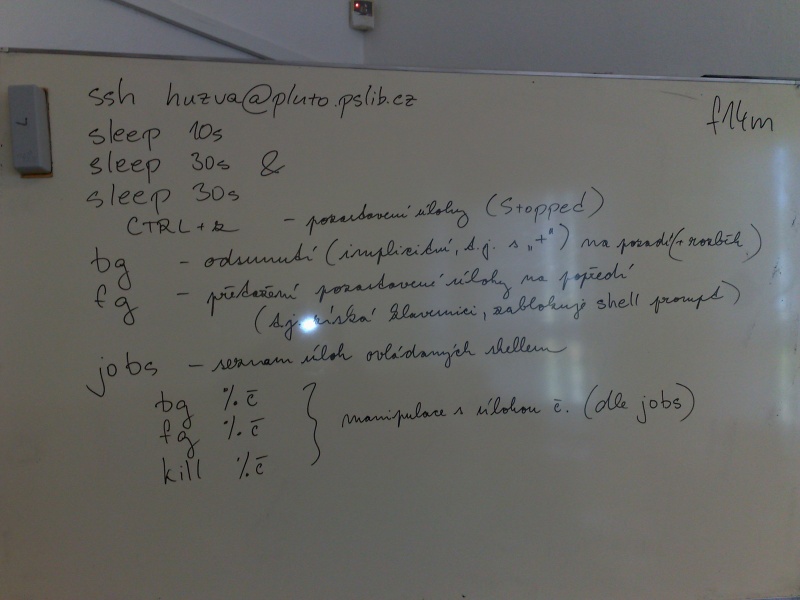 ssh huzva@pluto.pslib.cz
f14m
sleep 10s
sleep 30s &
sleep 30s
CTRL + z - pozastavení úlohy (Stopped)
bg - odsunutí (implicitní, t.j. s „+“) na pozadí (+ rozběh)
fg - přetažení pozastavené úlohy na popředí
(t.j. získá klávesnici, zablokuje shell prompt)
jobs - seznam úloh ovládaných shellem
bg %č
fg %č } manipulace s úlohou č. (dle jobs)
kill %č